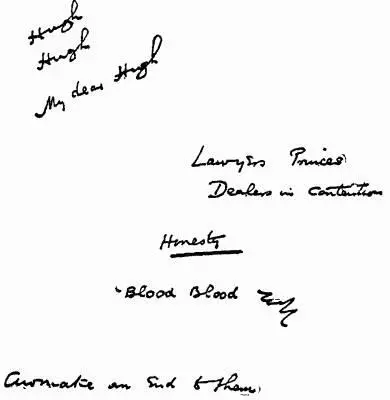 Hugh
Hugh
My dear Hugh
Lawyers Princes
Dealers in Contention
Honesty
Blood Blood
an End to them.